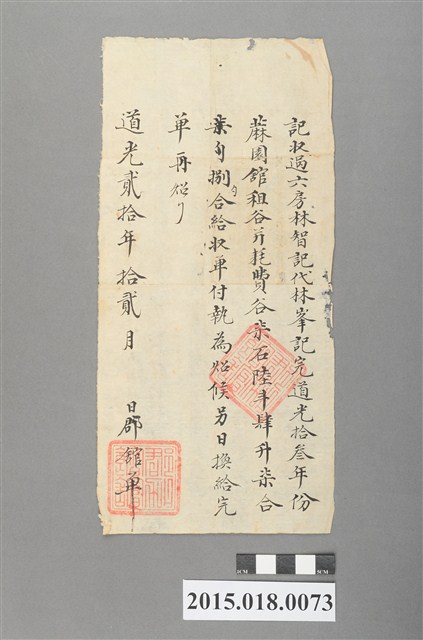 記收過六房林智記代林峯記完道光拾叁年份
蔴園館租谷并耗費谷柒石陸斗肆升柒合
柒勺捌 合給收单付執為炤候另日換給完
单再炤
道光貳拾年拾貳月 日郡館单
CM
5CM
2015.018.0073